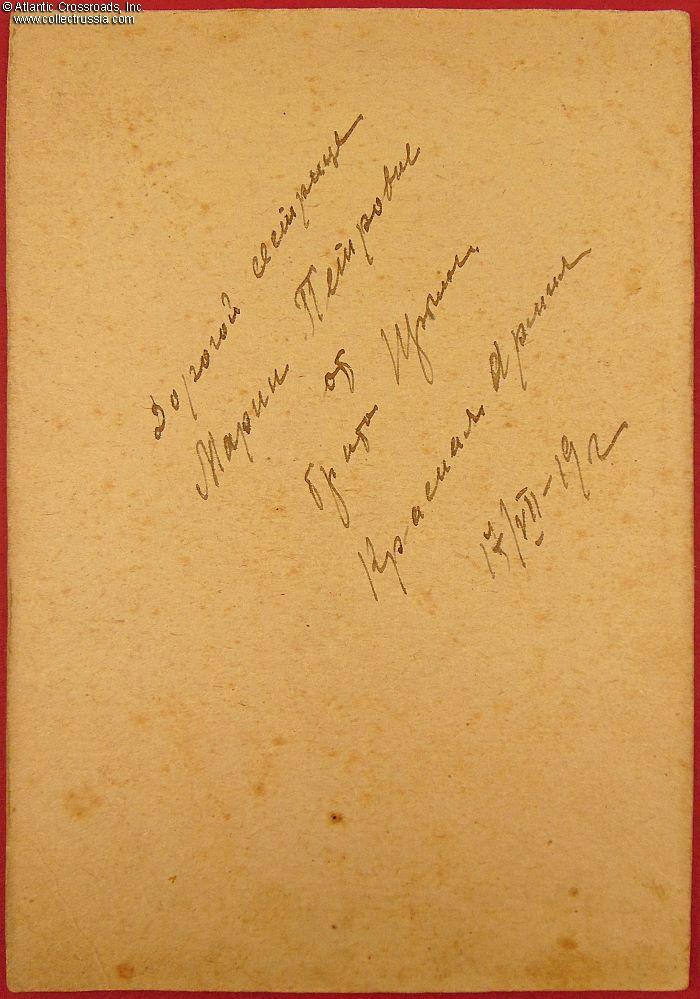 © Atlantic Crossroads, Inc.
www.collectrussia.com
Дорогой сестрице
Марии Петровне
от
брата
Красная Армия
/VII-19 г